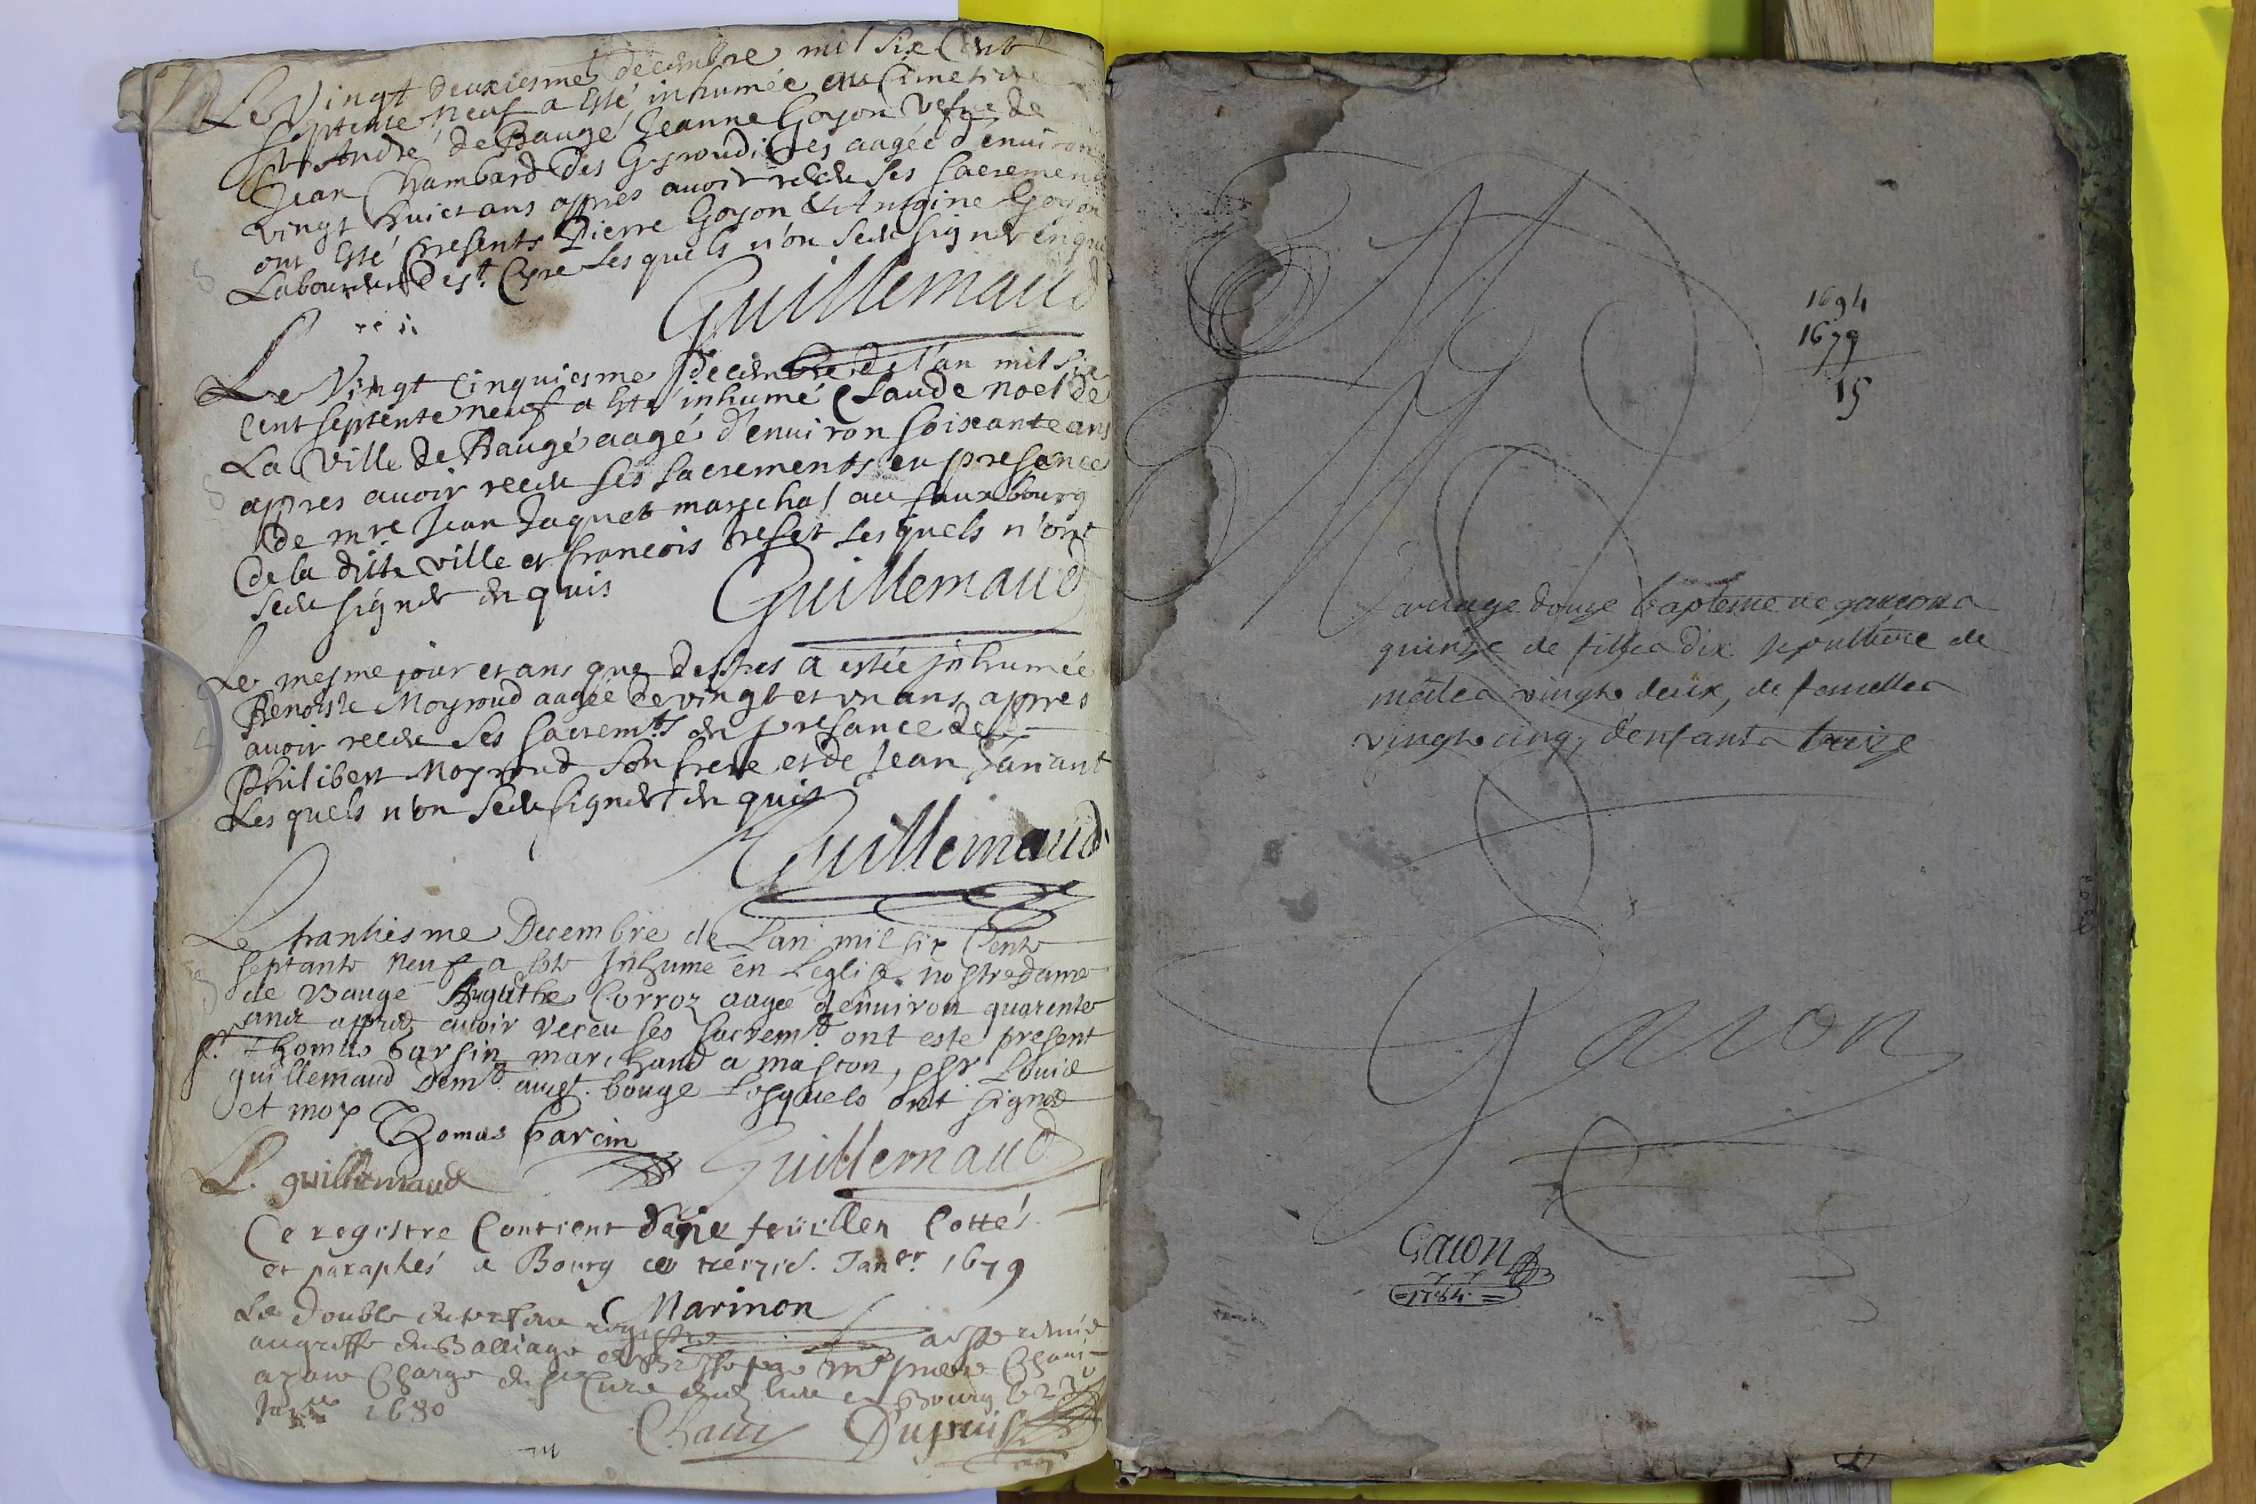 Le Vingt deuxiesme decembre mil six Cent
septente neuf a esté inhumée au Cimetiere
St André de Baugé Jeanne Goyon vefve de
Jean Chambard des Gyroudieres aagée d'enuiron
vingt huict ans appres auoir receu ses sacrements
ont esté presents Pierre Goyon & Antoine Goyon
Laboureurs de st. Cyre Lesquels n'on sceu signer enquis
Guillemaud
Le Vingt Cinquiesme decembre de l'an mil six
cent septente neuf a esté inhumé Claude noel de
La Ville de Baugé aagé d'enuiron soixante ans
appres auoir receu ses sacrements en presence
de mre Jean Jaquet mareschal au fauxbourg
de la ditte ville et francois bresset Lesquels n'ont
sceu signer en quis
Guillemaud
Le mesme jour et ans que dessus a estée inhumée
Benoiste Moyroud aagée de vingt et vn ans appres
auoir receu ses sacremts en presance de
Philibert Moyroud son frere et de Jean
Lesquels n'on sceu signer en quis
Guillemaud
Le trantiesme Decembre de Lan mil six Cent
septante neuf a esté Inhumé en Leglise nostre dame
de Baugé Corroz aagée d'enuiron quarente
ans appres auoir receu ses sacremts. ont este present
sr. Thomas Garsin marchand a mascon, Louis
guillemaud Lesquels ont signes
et moy
Thomas Garcin
L. guillemaud
Guillemaud
Ce registre Contient feüillen Cottés
et paraphés a Bourg ce treizie. Janer. 1679
Marinon
Le double du present registre a esté remis
au greffe du Balliage
ayant Charge du sr Cure dud. lieu a Bourg le 23
1680
Dupuis
1694
1679
15
mariage douze bapteme de garcons
quinze de filles dix sepulture de
mâles vingt deux, de femelles
vingt cinq, d'enfants treize
Gacon
Gacon
=1784=